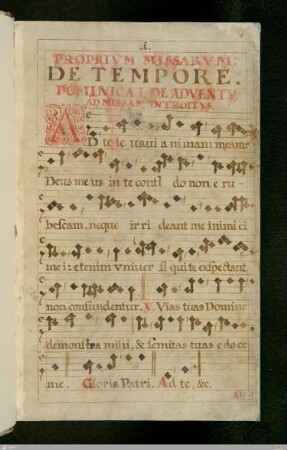 PROPRIVM MISSARVM.
DE TEMPORE.
DOMINICA I. DE ADVENTV
AD MISSAM INTROITVS.
AD te le vavi a nimam meam
Deus me us in te confi do non e ru-
bescam, neque ir ri deant me inimi ci
me i: etenim univer si qui te exspectant
non confundentur. V. Vias tuas Domine
demonstra mihi, & semitas tuas e do ce
me. Gloria Patri. Ad te, &c.